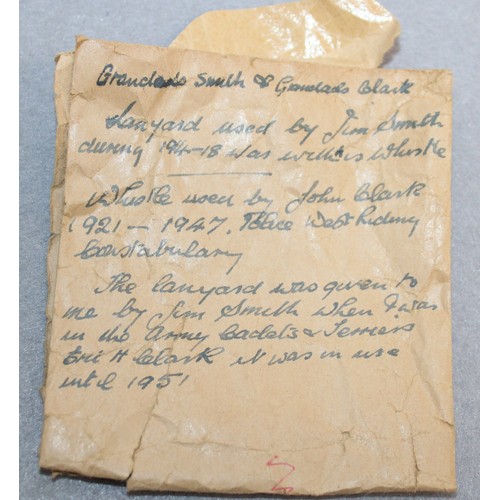 Grandads Smith & Grandads Clark
Lanyard used by Jim Smith
during 1914-18 War with his Whistle
Whistle used by John Clark
1921 - 1947. Police West Riding
Constabulary
The lanyard was given to
me by Jim Smith when I was
in the Army Cadets & Terriers
Eric H Clark it was in use
until 1951